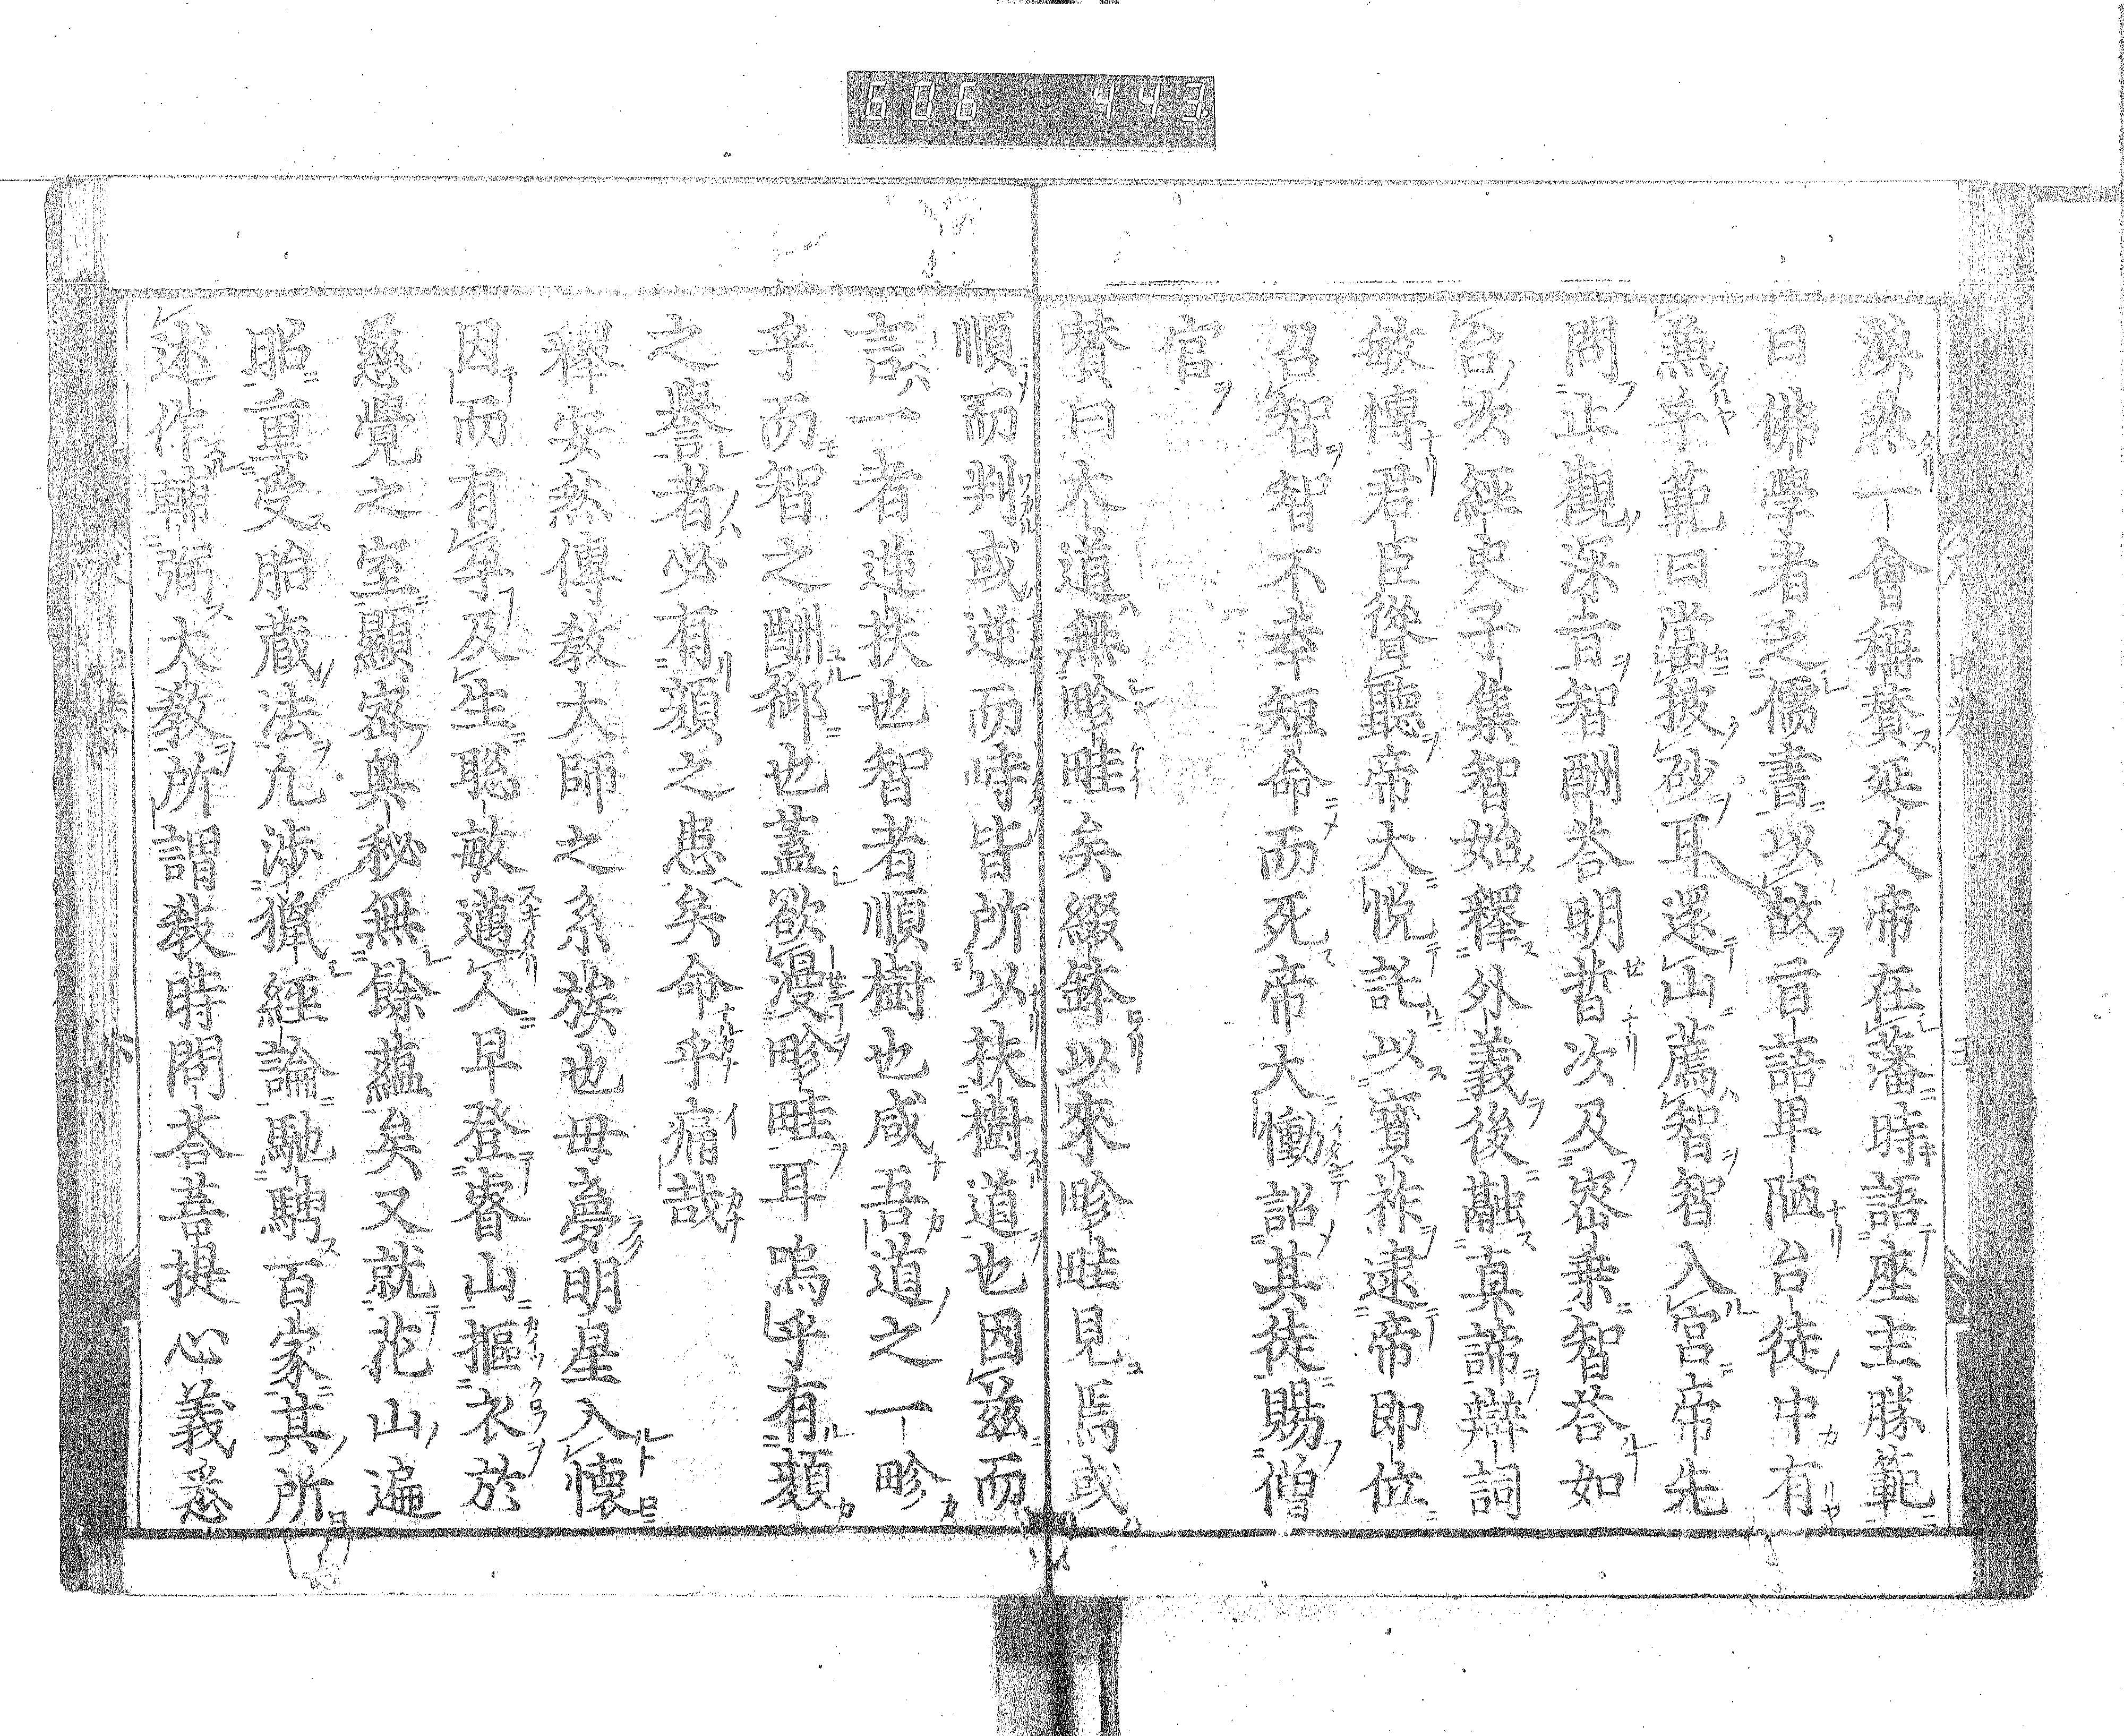 606 443
渙然一會稱賛延久帝在藩時語座主勝範
曰佛學者乏儒書以故言語卑陋台徒中有
兼乎範曰當披砂耳還山薦智智入宮帝先
問止觀深旨智酬荅明晢次及密乗智荅如
台次經史子集智始釋外義後融真諦辯詞
敏慱君臣聳聽帝大悦託以寳祚逮帝即位
召智智不幸短命而死帝大慟詔其徒賜僧
官
賛曰大道無畛畦矣綴鉢以來畛畦見焉或
順而判或逆而時皆所以扶樹道也因茲而
言一者逆扶也智者順樹也咸吾道之一畛
乎而智之酬御也蓋欲漫畛畦耳嗚乎有顔
之譽者必有顔之患矣命乎痛哉
釋安然傳教大師之系族也母夢明星入懐
因而有孕及生聡敏邁人早登睿山摳衣於
慈覺之室顯密奥秘無餘蘊矣又就花山遍
昭重受胎蔵法凢渉獵經論馳騁百家其所
述作輔弼大教所謂教時問荅菩提心義悉